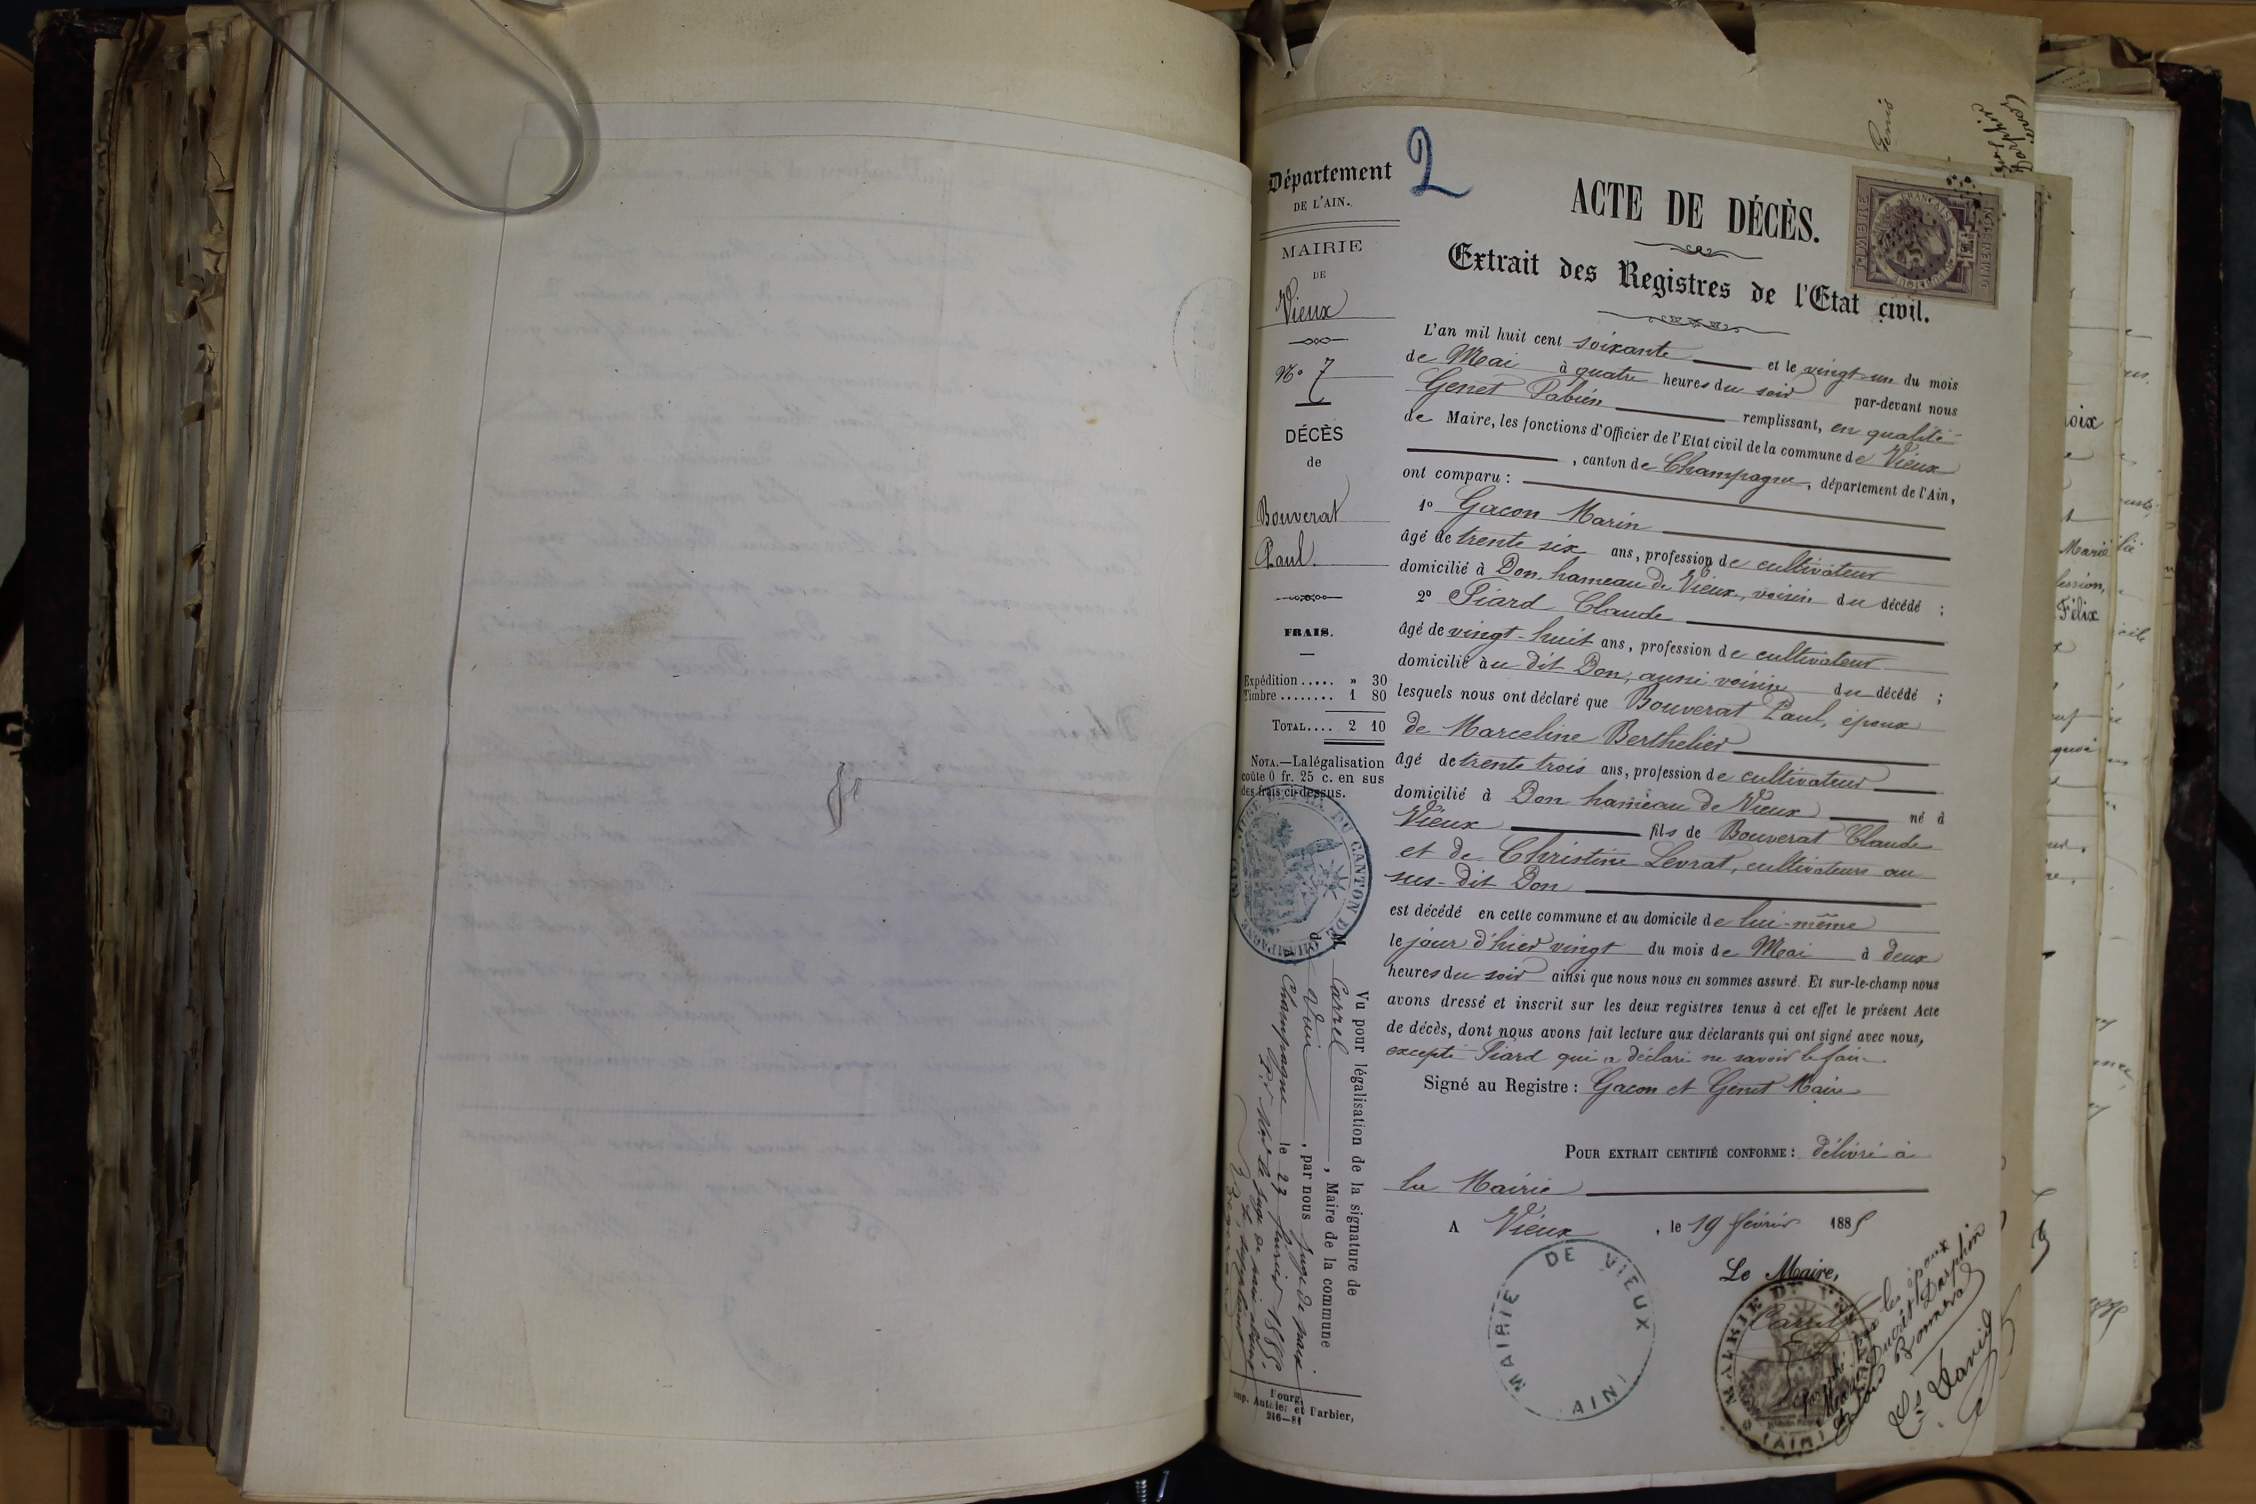 2
Département
DE L'AIN.
MAIRIE
DE
Vieux
N° 7
DÉCÈS
de
Bouverat
Paul.
FRAIS.
Expédition ..... » 30
Timbre ........ 1 80
TOTAL.... 2 10
NOTA.—La légalisation
coûte 0 fr. 25 c. en sus
des frais ci-dessus.
ACTE DE DÉCÈS.
Extrait des Registres de l'Etat civil.
L'an mil huit cent soixante et le vingt-un du mois
de Mai à quatre heures du soir par-devant nous
Genet Fabien remplissant, en qualité
de Maire, les fonctions d'Officier de l'Etat civil de la commune de Vieux
, canton de Champagne, département de l'Ain,
ont comparu :
1° Gacon Marin
âgé de trente six ans, profession de cultivateur
domicilié à Don, hameau de Vieux, voisin du décédé ;
2° Fiard Claude
âgé de vingt-huit ans, profession de cultivateur
domicilié au dit Don, aussi voisin du décédé ;
lesquels nous ont déclaré que Bouverat Paul, époux
de Marceline Berthelier
âgé de trente trois ans, profession de cultivateur
domicilié à Don hameau de Vieux né à
Vieux fils de Bouverat Claude
et de Christine Levrat, cultivateurs au
sus-dit Don
est décédé en cette commune et au domicile de lui-même
le jour d'hier vingt du mois de Mai à deux
heures du soir ainsi que nous nous en sommes assuré. Et sur-le-champ nous
avons dressé et inscrit sur les deux registres tenus à cet effet le présent Acte
de décès, dont nous avons fait lecture aux déclarants qui ont signé avec nous,
excepté Fiard qui a déclaré ne savoir le faire
Signé au Registre : Gacon et Genet Maire
POUR EXTRAIT CERTIFIÉ CONFORME : délivré à
la Mairie
A Vieux, le 19 février 1885
Le Maire,
Carrel
MAIRIE DE VIEUX
(AIN)
Vu pour légalisation de la signature de
M. Carrel, Maire de la commune
d Vieux, par nous Juge de paix
Champagne le 27 février 1885.
Bourg,
imp. Authier et Barbier,
246—84
TIMBRE
DIMENSION
les époux
Ducrôt Darphin